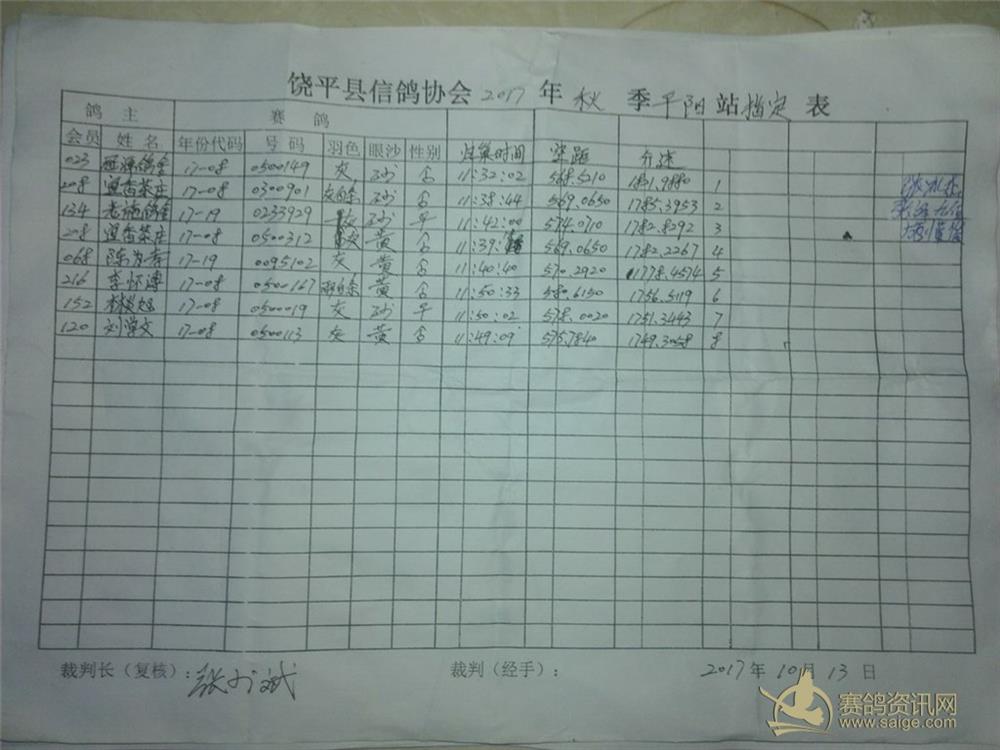 饶平县信鸽协会2017年秋季平阳站指定表
鸽主 赛鸽
会员 姓名 年份代码 号码 羽色 眼沙 性别 归巢时间 空距 分速
023 17-08 0500149 灰 砂 11:32:02 568.5210 1
208 宜香茶庄 17-08 0300901 砂 11:38:44 569.0650 1785.3953 2
134 17-19 0233929 砂 11:42:00 574.0710 1782.8292 3
208 宜香茶庄 17-08 0500312 黄 11:39: 569.0650 1782.2267 4
068 17-19 0095102 灰 黄 11:40:40 570.2920 1778.4574 5
216 李怀涛 17-08 0500167 黄 11:50:33 580.6150 1756.5119 6
152 17-08 0500019 灰 砂 11:50:02 578.0020 1751.3443 7
120 刘学文 17-08 0500113 灰 黄 11:49:09 575.7840 1749.3058 8
裁判长（复核）： 裁判（经手）： 2017年10月13日
赛鸽资讯网
www.saige.com